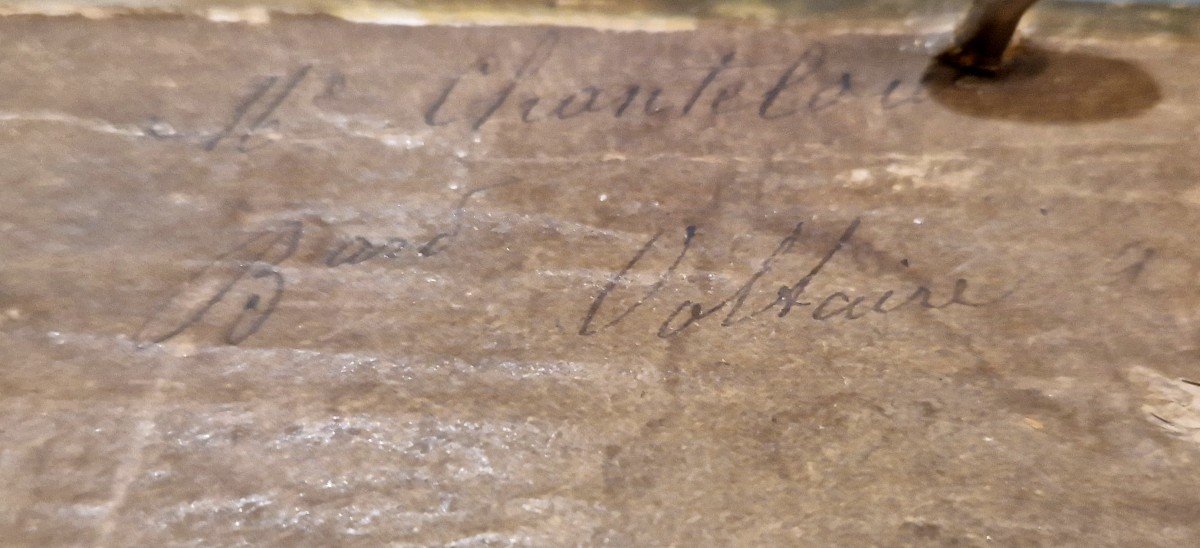 Me Chantelou
Bard Voltaire